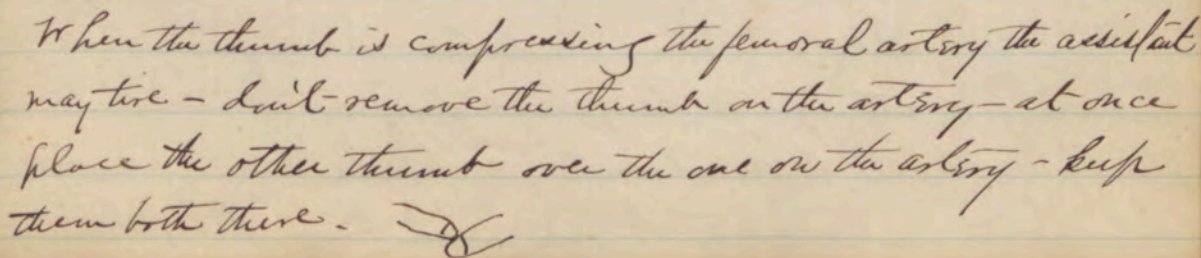 When the thumb is compressing the femoral artery the assistant
may tire - don't remove the thumb on the artery - at once
place the other thumb over the one on the artery - keep
them both there.